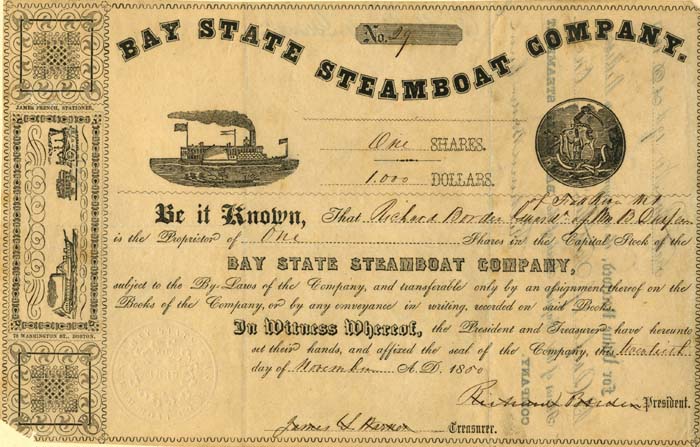 BAY STATE STEAMBOAT COMPANY.
No. 29
JAMES FRENCH, STATIONER,
78 WASHINGTON ST., BOSTON.
One SHARES.
1.000 DOLLARS.
Be it Known, That Richard Borden Guardn. of Wm B.
is the Proprietor of One Shares in the Capital Stock of the
BAY STATE STEAMBOAT COMPANY,
subject to the By-Laws of the Company, and transferable only by an assignment thereof on the
Books of the Company, or by any conveyance in writing, recorded on said Books.
In Witness Whereof, the President and Treasurer have hereunto
set their hands, and affixed the seal of the Company, this twentieth
day of November A.D. 1850
Richard Borden President.
James S. Treasurer.